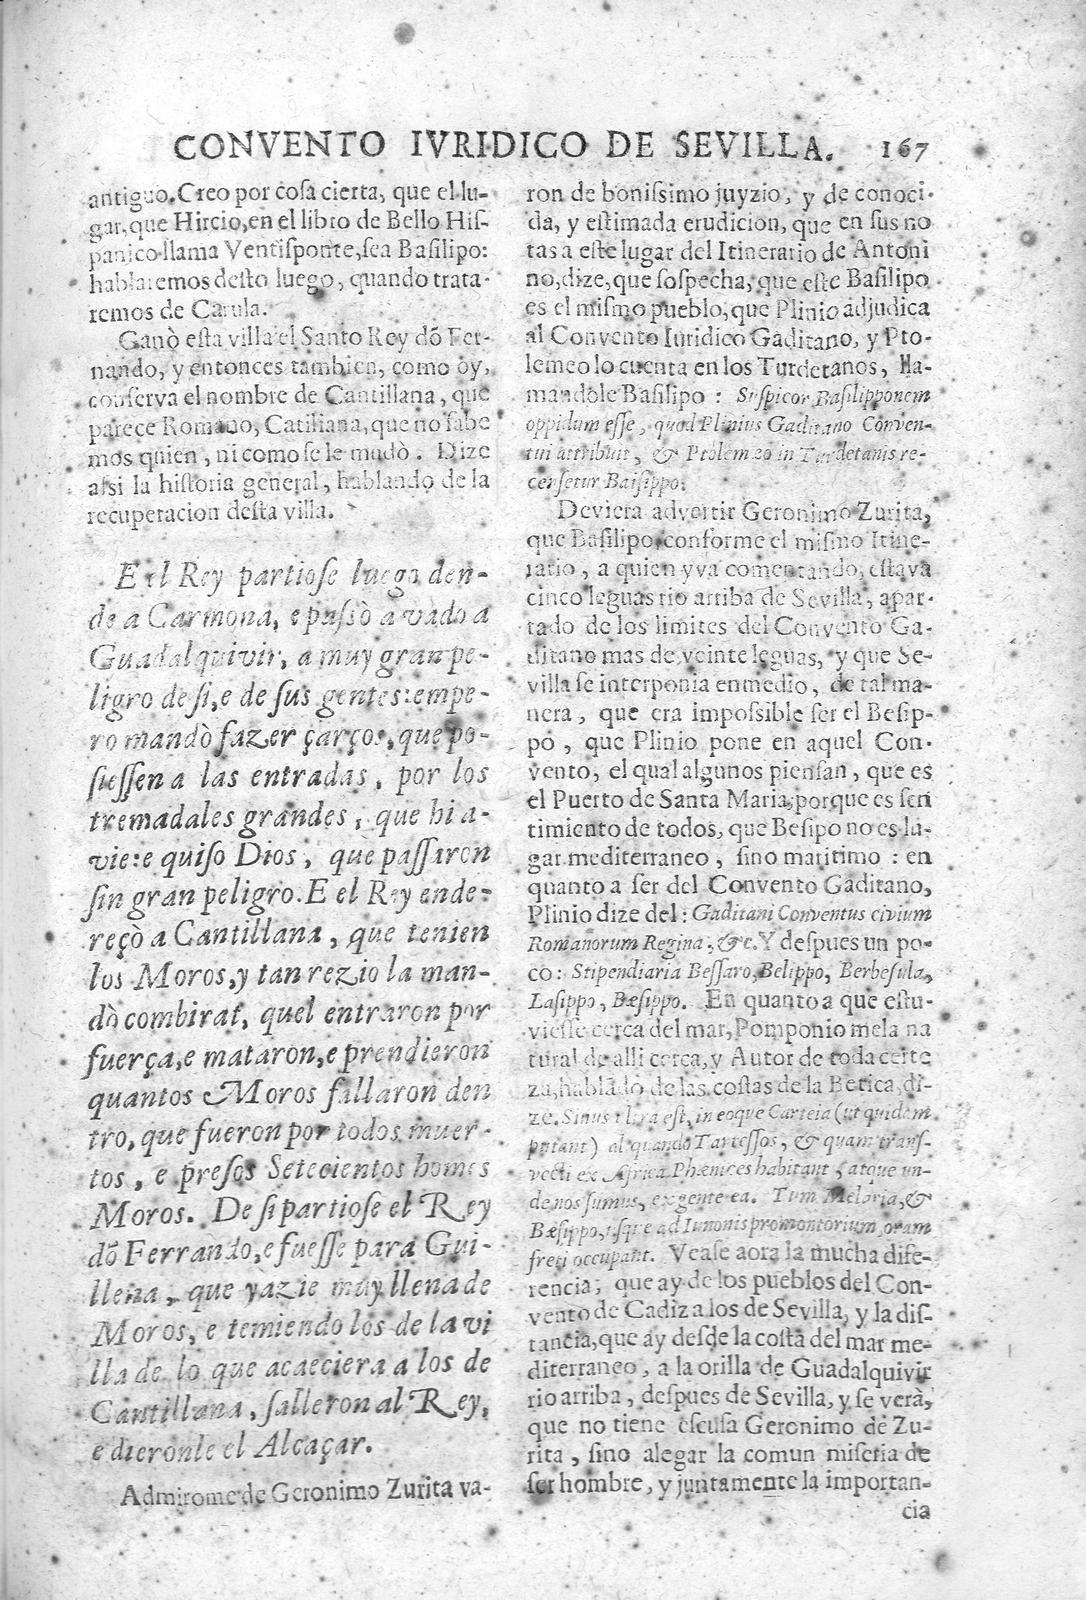 CONVENTO IVRIDICO DE SEVILLA. 167
antiguo. Creo por cosa cierta, que el lu-
gar, que Hircio, en el libro de Bello His-
panico llama Ventisponte, sea Basilipo:
hablaremos desto luego, quando trata-
remos de Carula.
Ganò esta villa el Santo Rey dõ Fer-
nando, y entonces tambien, como oy,
conserva el nombre de Cantillana, que
parece Romano, Catiliana, que no sabe
mos quien, ni como se le mudò. Dize
assi la historia general, hablando de la
recuperacion desta villa.
E el Rey partiose luego den-
de a Carmona, e passò a vado a
Guadalquivir, a muy gran pe-
ligro de si, e de sus gentes: empe-
ro mandò fazer çarços, que po-
siessen a las entradas, por los
tremadales grandes, que hi a-
vie: e quiso Dios, que passaron
sin gran peligro. E el Rey ende-
reçò a Cantillana, que tenien
los Moros, y tan rezio la man-
dò combirat, quel entraron por
fuerça, e mataron, e prendieron
quantos Moros fallaron den
tro, que fueron por todos muer-
tos, e presos Setecientos homes
Moros. De si partiose el Rey
dõ Ferrando, e fuesse para Gui-
llena, que yazie muy llena de
Moros, e temiendo los de la vi
lla de lo que acaeciera a los de
Cantillana, salleron al Rey,
e dieronle el Alcaçar.
Admirome de Geronimo Zurita va-
ron de bonissimo juyzio, y de conoci-
da, y estimada erudicion, que en sus no
tas a este lugar del Itinerario de Antoni
no, dize, que sospecha, que este Basilipo
es el mismo pueblo, que Plinio adjudica
al Convento Iuridico Gaditano, y Pto-
lemeo lo cuenta en los Turdetanos, lla-
mandole Basilipo: Suspicor Basilipponem
oppidum esse, quod Plinius Gaditano Conven-
tui attribuit, & Ptolemæo in Turdetanis re-
censetur Baisippo.
Deviera advertir Geronimo Zurita,
que Basilipo, conforme el mismo Itine-
rario, a quien yva comentando, estava
cinco leguas rio arriba de Sevilla, apar-
tado de los limites del Convento Ga-
ditano mas de veinte leguas, y que Se-
villa se interponia enmedio, de tal ma-
nera, que era impossible ser el Besip-
po, que Plinio pone en aquel Con-
vento, el qual algunos piensan, que es
el Puerto de Santa Maria, porque es sen
timiento de todos, que Besipo no es lu-
gar mediterraneo, sino maritimo: en
quanto a ser del Convento Gaditano,
Plinio dize del: Gaditani Conventus civium
Romanorum Regina, &c. Y despues un po-
co: Stipendiaria Bessaro, Belippo, Berbesula,
Lasippo, Bæsippo. En quanto a que estu-
viesse cerca del mar, Pomponio mela na
tural de alli cerca, y Autor de toda certe
za, hablãdo de las costas de la Betica, di-
ze. Sinus ultra est, in eoque Carteia (ut quidam
putant) aliquando Tartessos, & quam trans-
vecti ex Africa Phœnices habitant, atque un-
de nos sumus, ex gente ea. Tum Meloria, &
Bæsippo, usque ad Iunonis promontorium, oram
freti occupant. Vease aora la mucha dife-
rencia, que ay de los pueblos del Con-
vento de Cadiz a los de Sevilla, y la dis-
tancia, que ay desde la costa del mar me-
diterraneo, a la orilla de Guadalquivir
rio arriba, despues de Sevilla, y se verà,
que no tiene escusa Geronimo de Zu-
rita, sino alegar la comun miseria de
ser hombre, y juntamente la importan-
cia